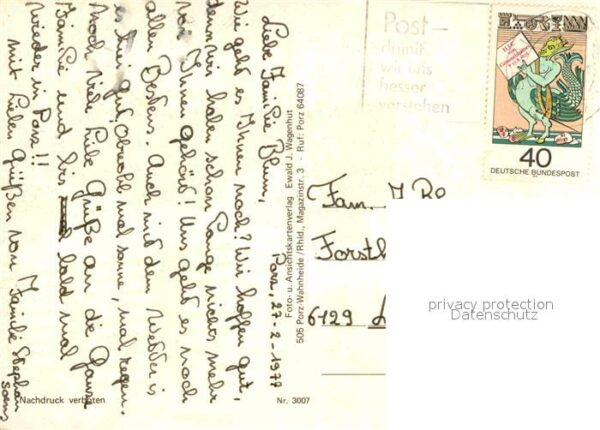 Porz, 27-2-1977
Liebe Familie Blum,
Wie geht es Ihnen noch? Wir hoffen gut,
denn wir haben schon lange nichts mehr
von Ihnen gehört! Uns geht es noch
allen Bestens. Auch mit dem Wetter is
es hier gut, Obwohl mal sonne, mal regen.
Noch viele liebe Grüße an die Ganze
Familie und bis bald mal
wieder in Porz!!
mit vielen Grüßen von Familie Stephan
Foto- u. Ansichtskartenverlag Ewald J. Wagenhut
505 Porz-Wahnheide/Rhld., Magazinstr. 3 - Ruf: Porz 64087
Nachdruck verboten
Nr. 3007
Post-
damit
wir uns
besser
verstehen
40
DEUTSCHE BUNDESPOST
Fam.
Forsth
6129
privacy protection
Datenschutz